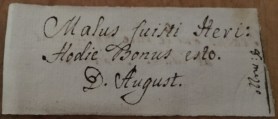 Malus fuisti Heri:
Hodie Bonus esto.
D. August.